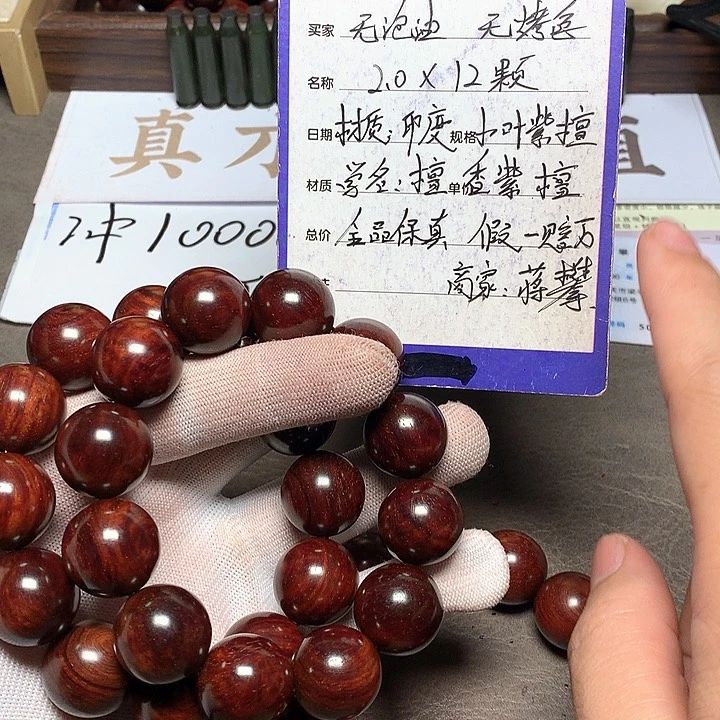 买家 无泡油 无烤色
名称 2.0 X 12颗
日期 材质:印度 规格 小叶紫檀
材质 学名:檀 单价 香紫檀
总价 全品保真 假一赔万
商家:蒋攀
真
冲1000